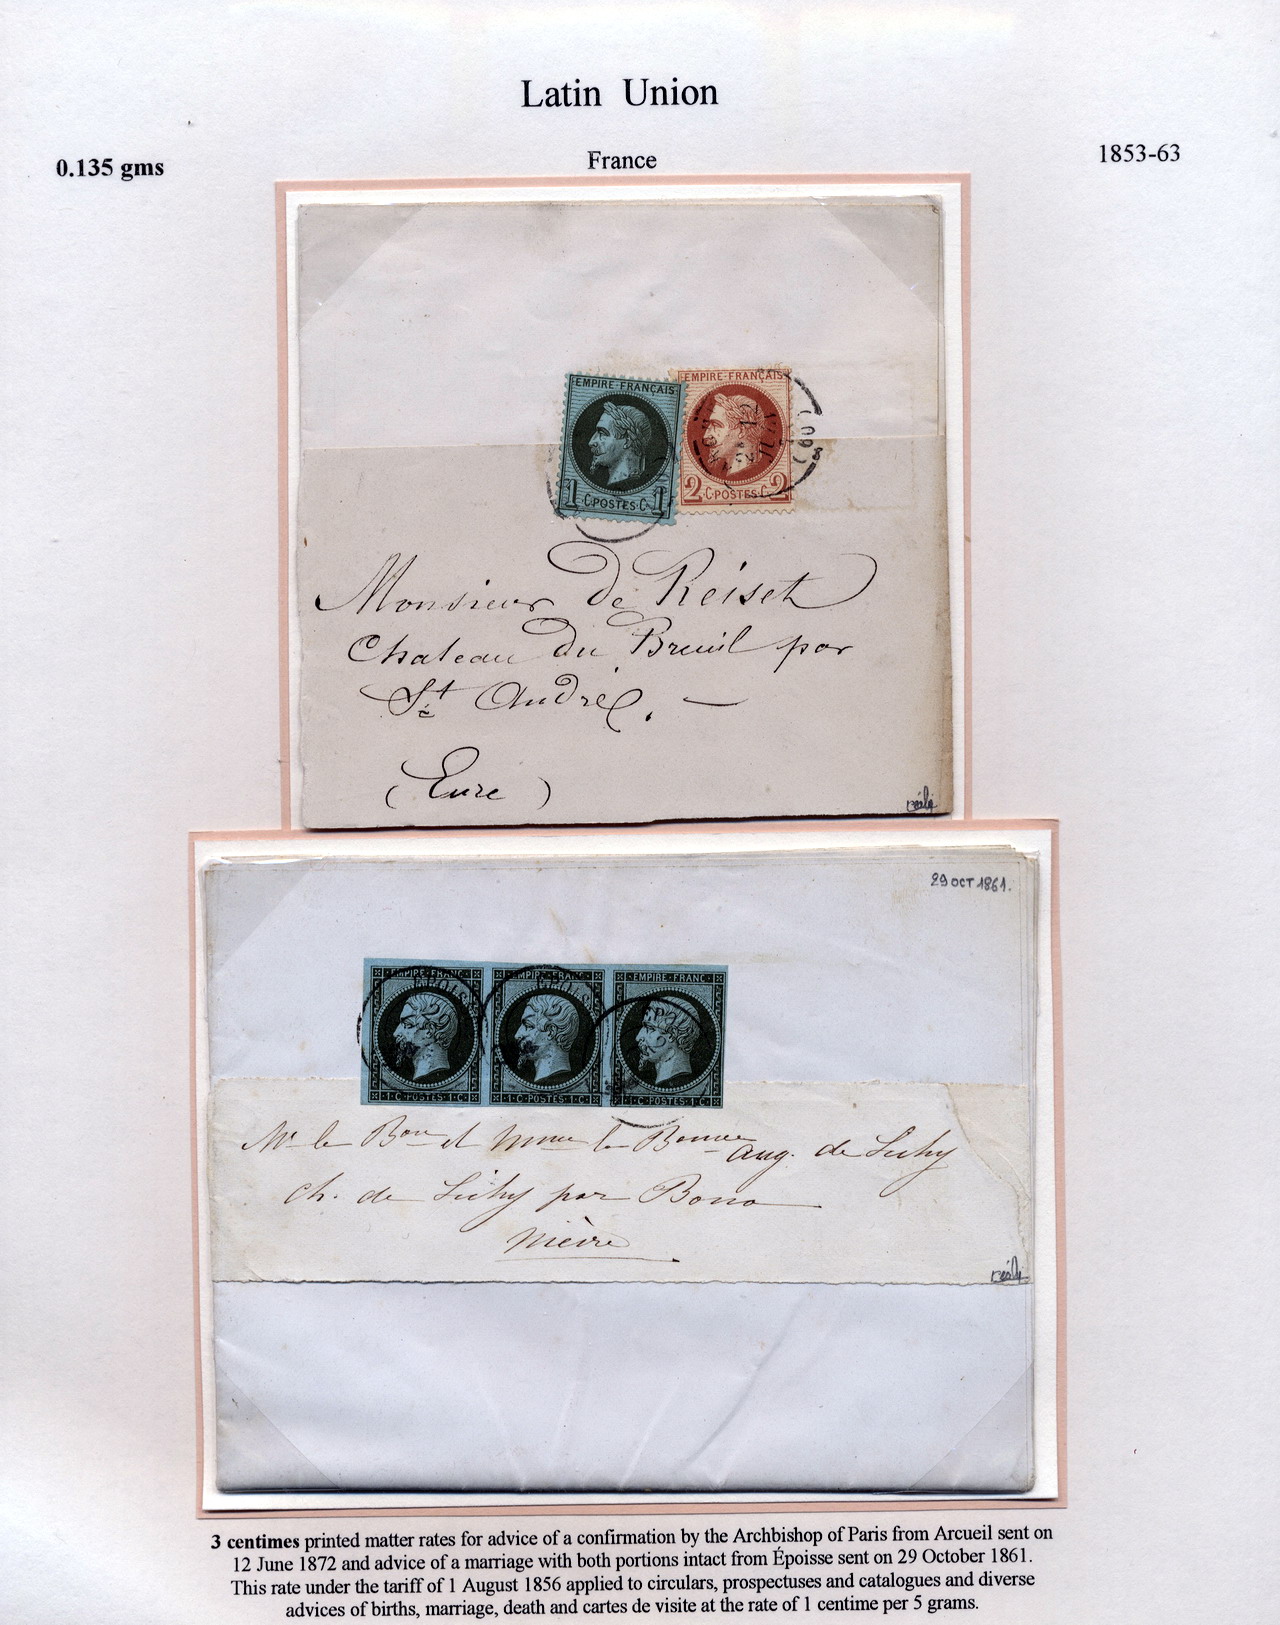 Latin Union
0.135 gms
France
1853-63
EMPIRE·FRANÇAIS
1 ·C·POSTES·C· 1
EMPIRE·FRANÇAIS
2 ·C·POSTES·C· 2
(60)
Monsieur de Reiset
Chateau du Breuil par
St André. —
(Eure)
29 OCT 1861.
EMPIRE·FRANC·
EMPIRE·FRANC·
EMPIRE·FRANC·
·1·C·POSTES·1·C·
·1·C·POSTES·1·C·
·1·C·POSTES·1·C·
Mr le Bon et Mme la Bonne Aug. de
Ch. de par Bona
Nièvre
3 centimes printed matter rates for advice of a confirmation by the Archbishop of Paris from Arcueil sent on
12 June 1872 and advice of a marriage with both portions intact from Époisse sent on 29 October 1861.
This rate under the tariff of 1 August 1856 applied to circulars, prospectuses and catalogues and diverse
advices of births, marriage, death and cartes de visite at the rate of 1 centime per 5 grams.